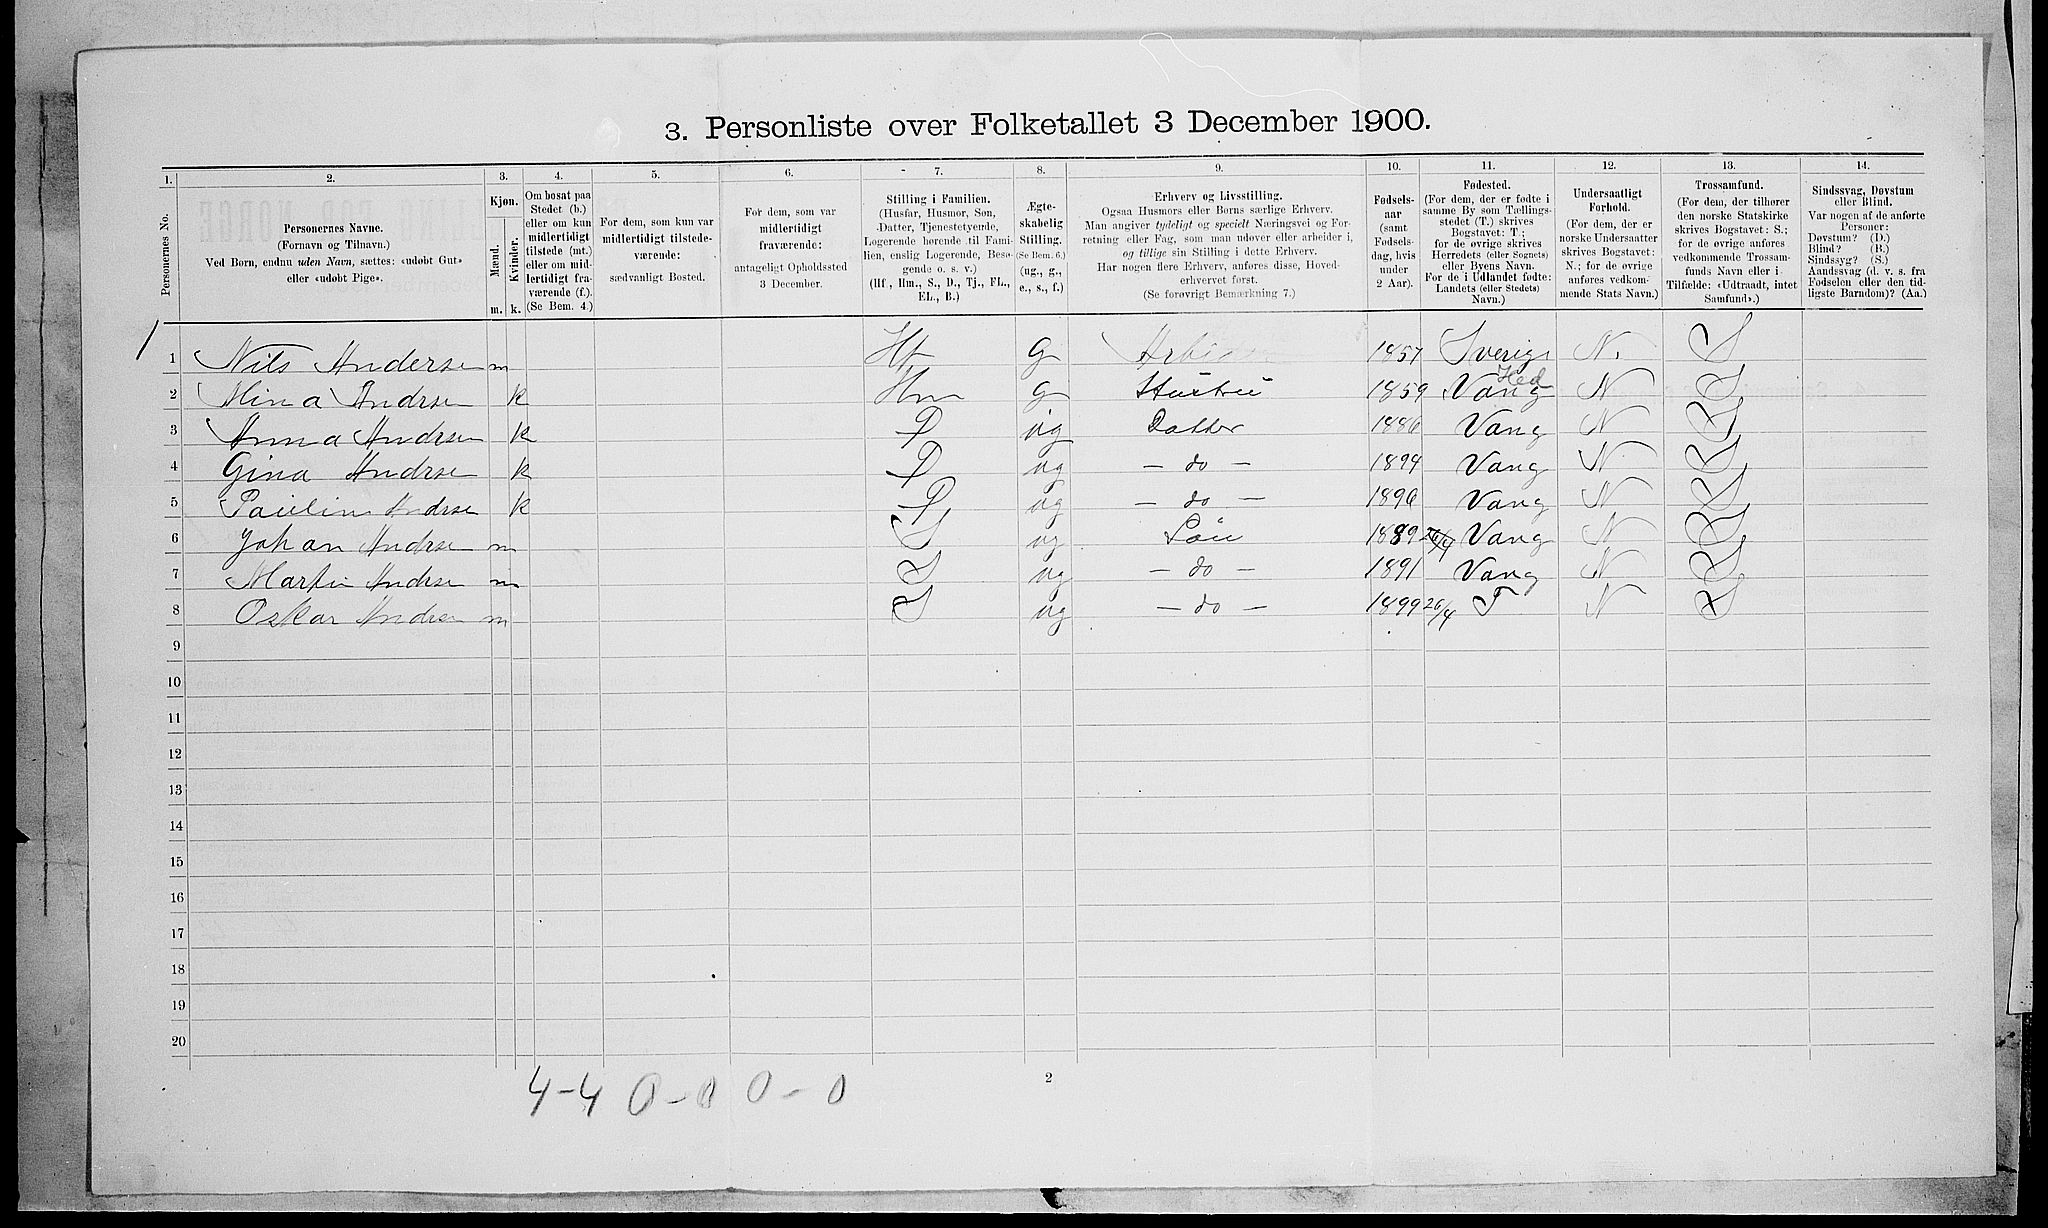 3. Personliste over Folketallet 3 December 1900.
1. 2. 3. 4. 5. 6. 7. 8. 9. 10. 11. 12. 13. 14.
Personernes No.
Personernes Navne.
(Fornavn og Tilnavn.)
Ved Børn, endnu uden Navn, sættes: «udøbt Gut»
eller «udøbt Pige».
Kjøn.
Mænd.
Kvinder.
m. k.
Om bosat paa
Stedet (b.)
eller om kun
midlertidigt
tilstede (mt.)
eller om mid-
lertidigt fra-
værende (f.).
(Se Bem. 4.)
For dem, som kun var
midlertidigt tilstede-
værende:
sædvanligt Bosted.
For dem, som var
midlertidigt
fraværende:
antageligt Opholdssted
3 December.
Stilling i Familien.
(Husfar, Husmor, Søn,
Datter, Tjenestetyende,
Logerende hørende til Fami-
lien, enslig Logerende, Besø-
gende o. s. v.)
(Hf., Hm., S., D., Tj., FL.,
EL., B.)
Ægte-
skabelig
Stilling.
(Se Bem. 6.)
(ug., g.,
e., s., f.)
Erhverv og Livsstilling.
Ogsaa Husmors eller Børns særlige Erhverv.
Man angiver tydeligt og specielt Næringsvei og For-
retning eller Fag, som man udøver eller arbeider i,
og tillige sin Stilling i dette Erhverv.
Har nogen flere Erhverv, anføres disse, Hoved-
erhvervet først.
(Se forøvrigt Bemærkning 7.)
Fødsels-
aar
(samt
Fødsels-
dag, hvis
under
2 Aar).
Fødested.
(For dem, der er fødte i
samme By som Tællings-
stedet (T.) skrives
Bogstavet: T.;
for de øvrige skrives
Herredets (eller Sognets)
eller Byens Navn.
For de i Udlandet fødte:
Landets (eller Stedets)
Navn.)
Undersaatligt
Forhold.
(For dem, der er
norske Undersaatter
skrives Bogstavet:
N.; for de øvrige
anføres vedkom-
mende Stats Navn.)
Trossamfund.
(For dem, der tilhører
den norske Statskirke
skrives Bogstavet: S.;
for de øvrige anføres
vedkommende Trossam-
funds Navn eller i
Tilfælde: «Udtraadt, intet
Samfund».)
Sindssvag, Døvstum
eller Blind.
Var nogen af de anførte
Personer:
Døvstum? (D.)
Blind? (B.)
Sindssyg? (S.)
Aandssvag (d. v. s. fra
Fødselen eller den tid-
ligste Barndom)? (Aa.)
1
1 Nils Andersen m Hf G 1857 Sverig N. S
Hed
2 Mina Andrsen k Hm G Hustru 1859 Vang N S
3 Anna Andrsen k D ug Datter 1886 Vang N S
4 Gina Andrsen k D ug — do — 1894 Vang N. S
5 Paulin Andrsen k D ug — do — 1896 Vang N S
6 Johan Andrsen m S ug Søn 1889 Vang N S
7 Martin Andrsen m S ug — do — 1891 Vang N S
8 Oskar Andrsen m S ug — do — 1899 26/4 T N S
9
10
11
12
13
14
15
16
17
18
19
20
4-4 0-0 0-0
2